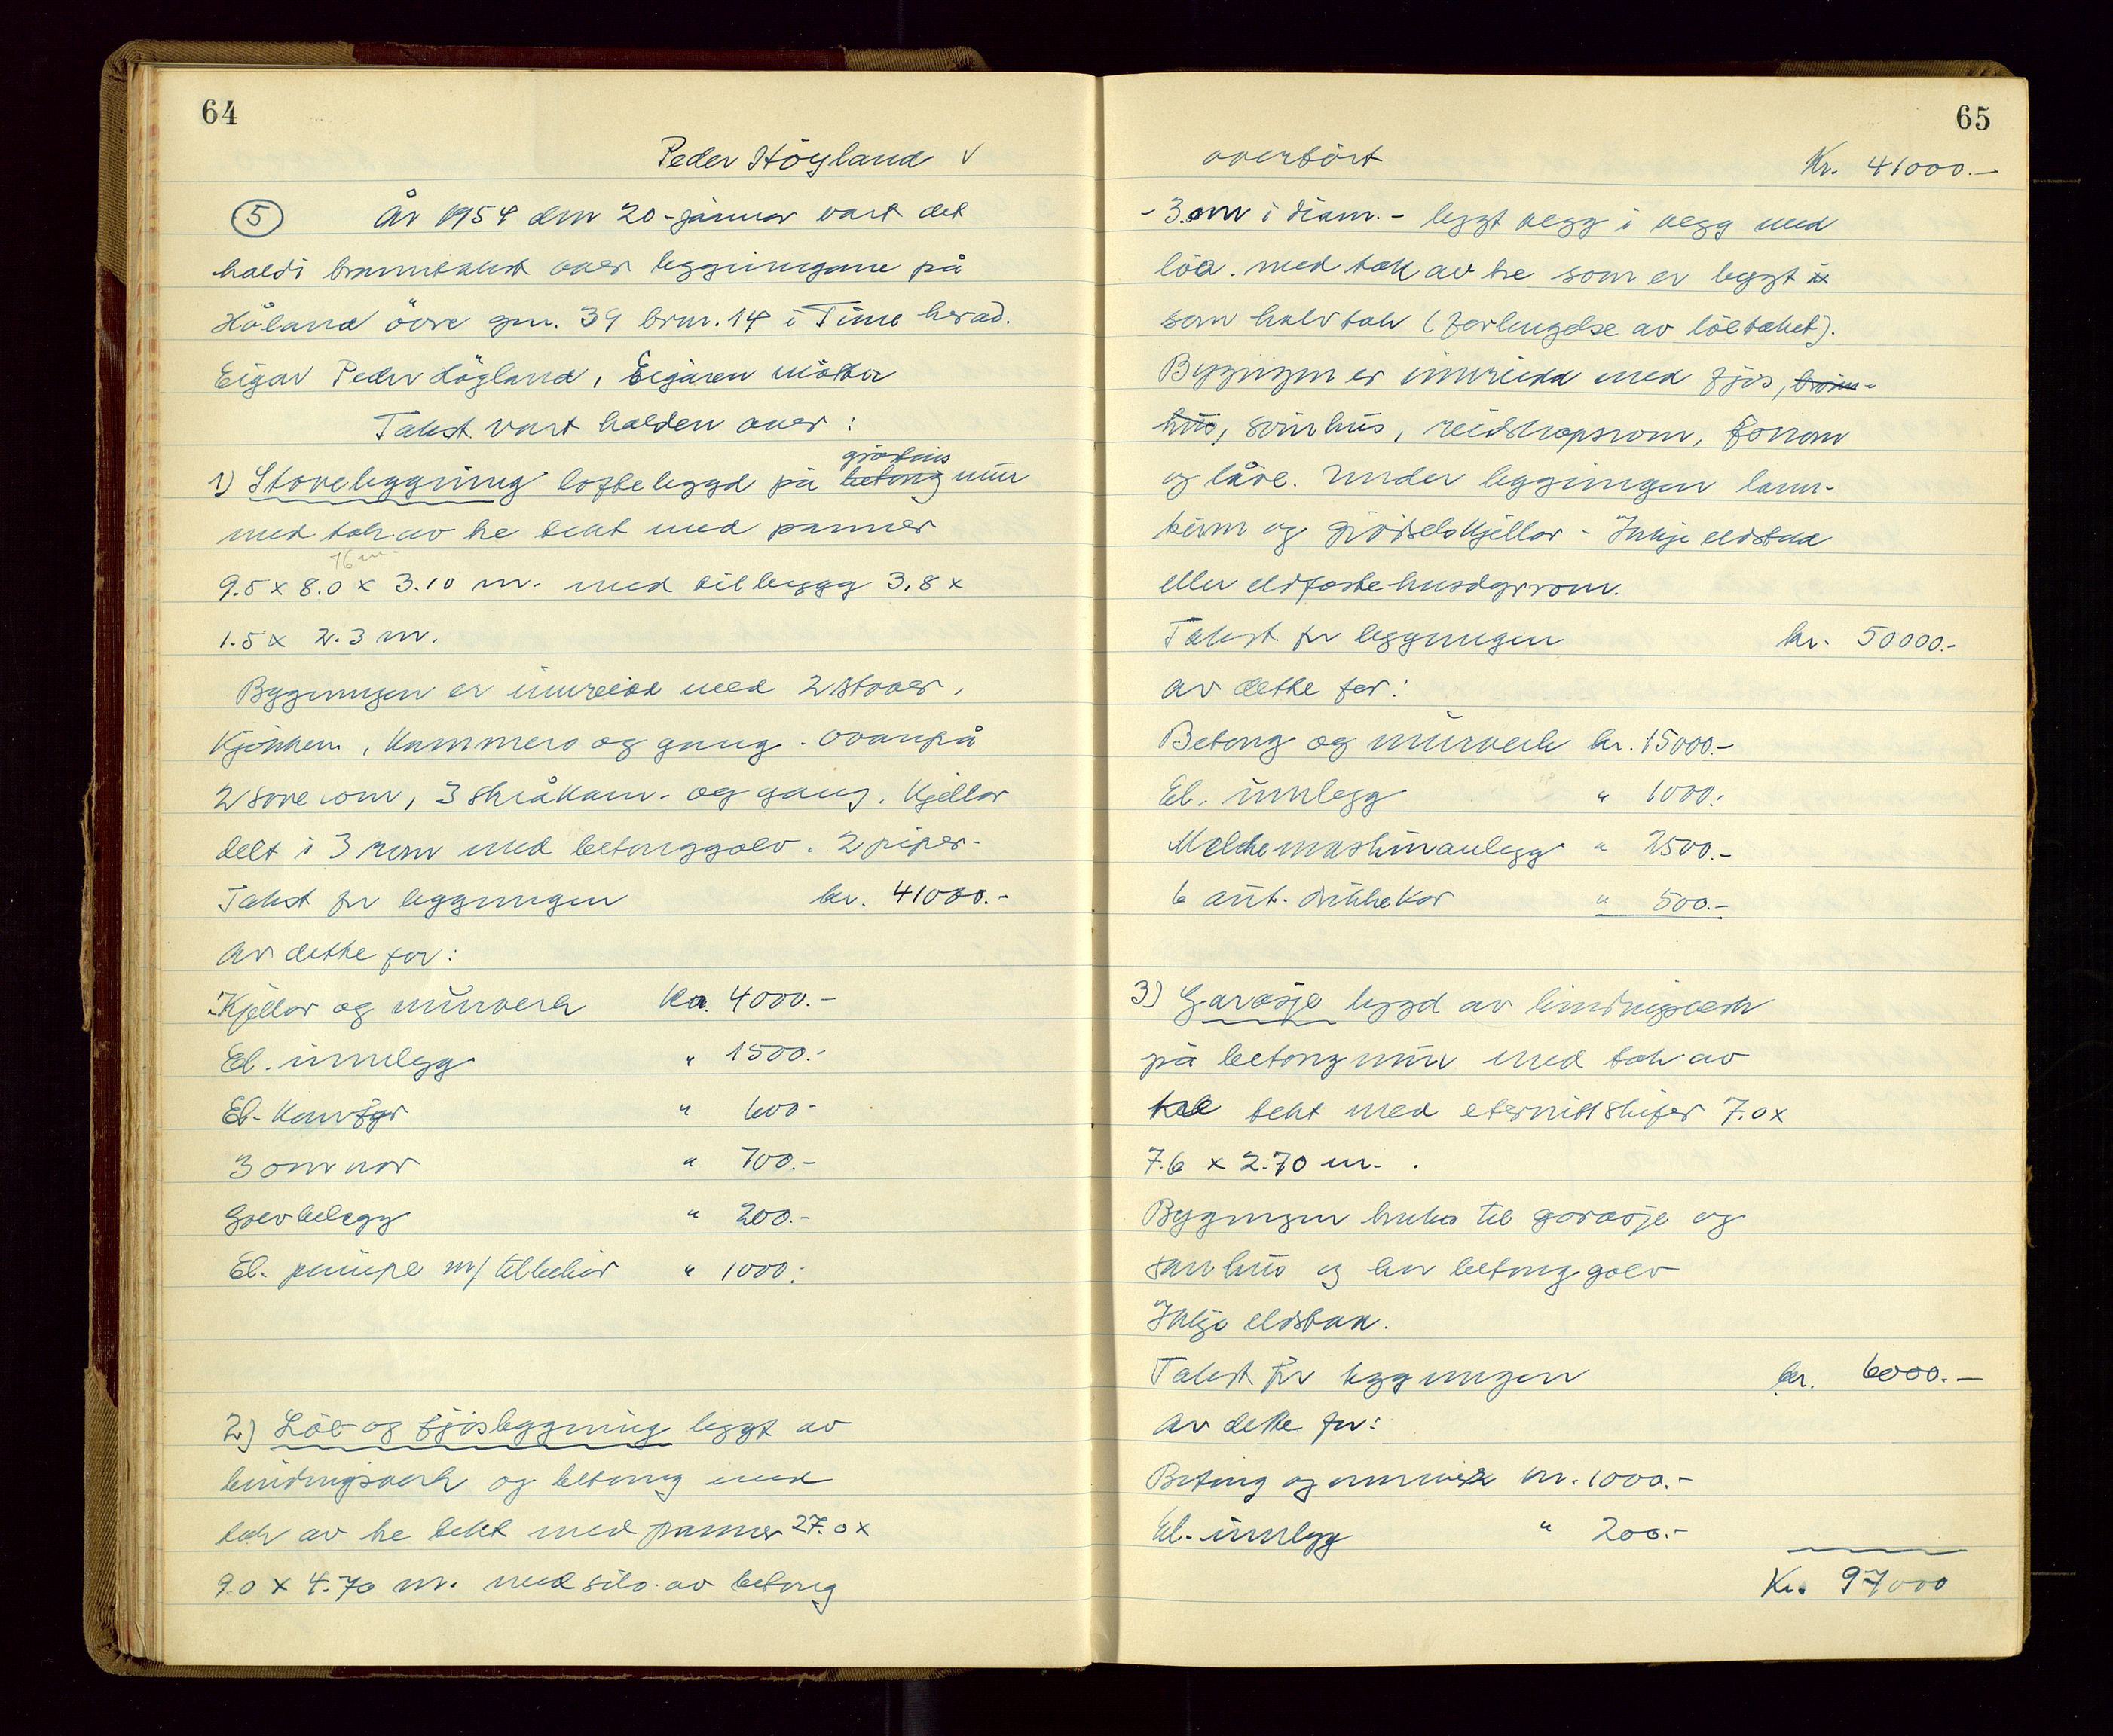 64
Peder Högland v
5 År 1954 den 20-januar vart det
haldi branntakst over byggningane på
Håland övre gnr. 39 brnr. 14 i Time herad.
Eigar Peder Högland, Eigaren mötte
Takst vart halden over:
gråsteins
1) Stovebyggning loftbyggd på betong mur
med tak av tre tekt med panner
76 m.
9.5 x 8.0 x 3.10 m. med tilbygg 3.8 x
1.5 x 2.3 m.
Bygningen er innreidd med 2 stover,
kjökken, kammers og gang. ovanpå
2 soverom, 3 skråkam. og gang. Kjellar
delt i 3 rom med betonggolv. 2 piper.
Takst for byggningen kr. 41000.-
Av dette for:
Kjellar og murverk Kr. 4000.-
El. innlegg " 1500.-
El. komfyr " 600.-
3 omnar " 700.-
Golvbelegg " 200.-
El. pumpe m/ tilbehör " 1000.-
2) Löe og fjösbyggning bygt av
bindingsverk og betong med
tak av tre tekt med panner 27.0 x
9.0 x 4.70 m. med silo av betong
65
overfört Kr. 41000.-
- 3.0m i diam. - bygt vegg i vegg med
löa. med tak av tre som er bygt
som halvtak (forlengelse av löetaket).
Bygningen er innreidd med fjös,
svinhus, reidskapsrom, forrom
og låve. Under byggningen land-
kum og gjödselskjellar - Inkje eldstad
eller eldfarlege husdyrrom.
Takst for byggningen kr. 50000.-
av dette for:
Betong og murverk kr. 15000.-
El. innlegg " 1000.-
Melkemaskinanlegg " 2500.-
6 aut. drikkekar " 500.-
3) Garasje bygd av bindingsverk
på betong mur med tak av
tre tekt med eternittskifer 7.0 x
7.6 x 2.70 m.
Bygningen brukes til garasje og
hus og har betonggolv
Inkje eldstad.
Takst for byggningen kr. 6000.-
Av dette for:
Betong og murverk kr. 1000.-
El. innlegg " 200.-
Kr. 97000